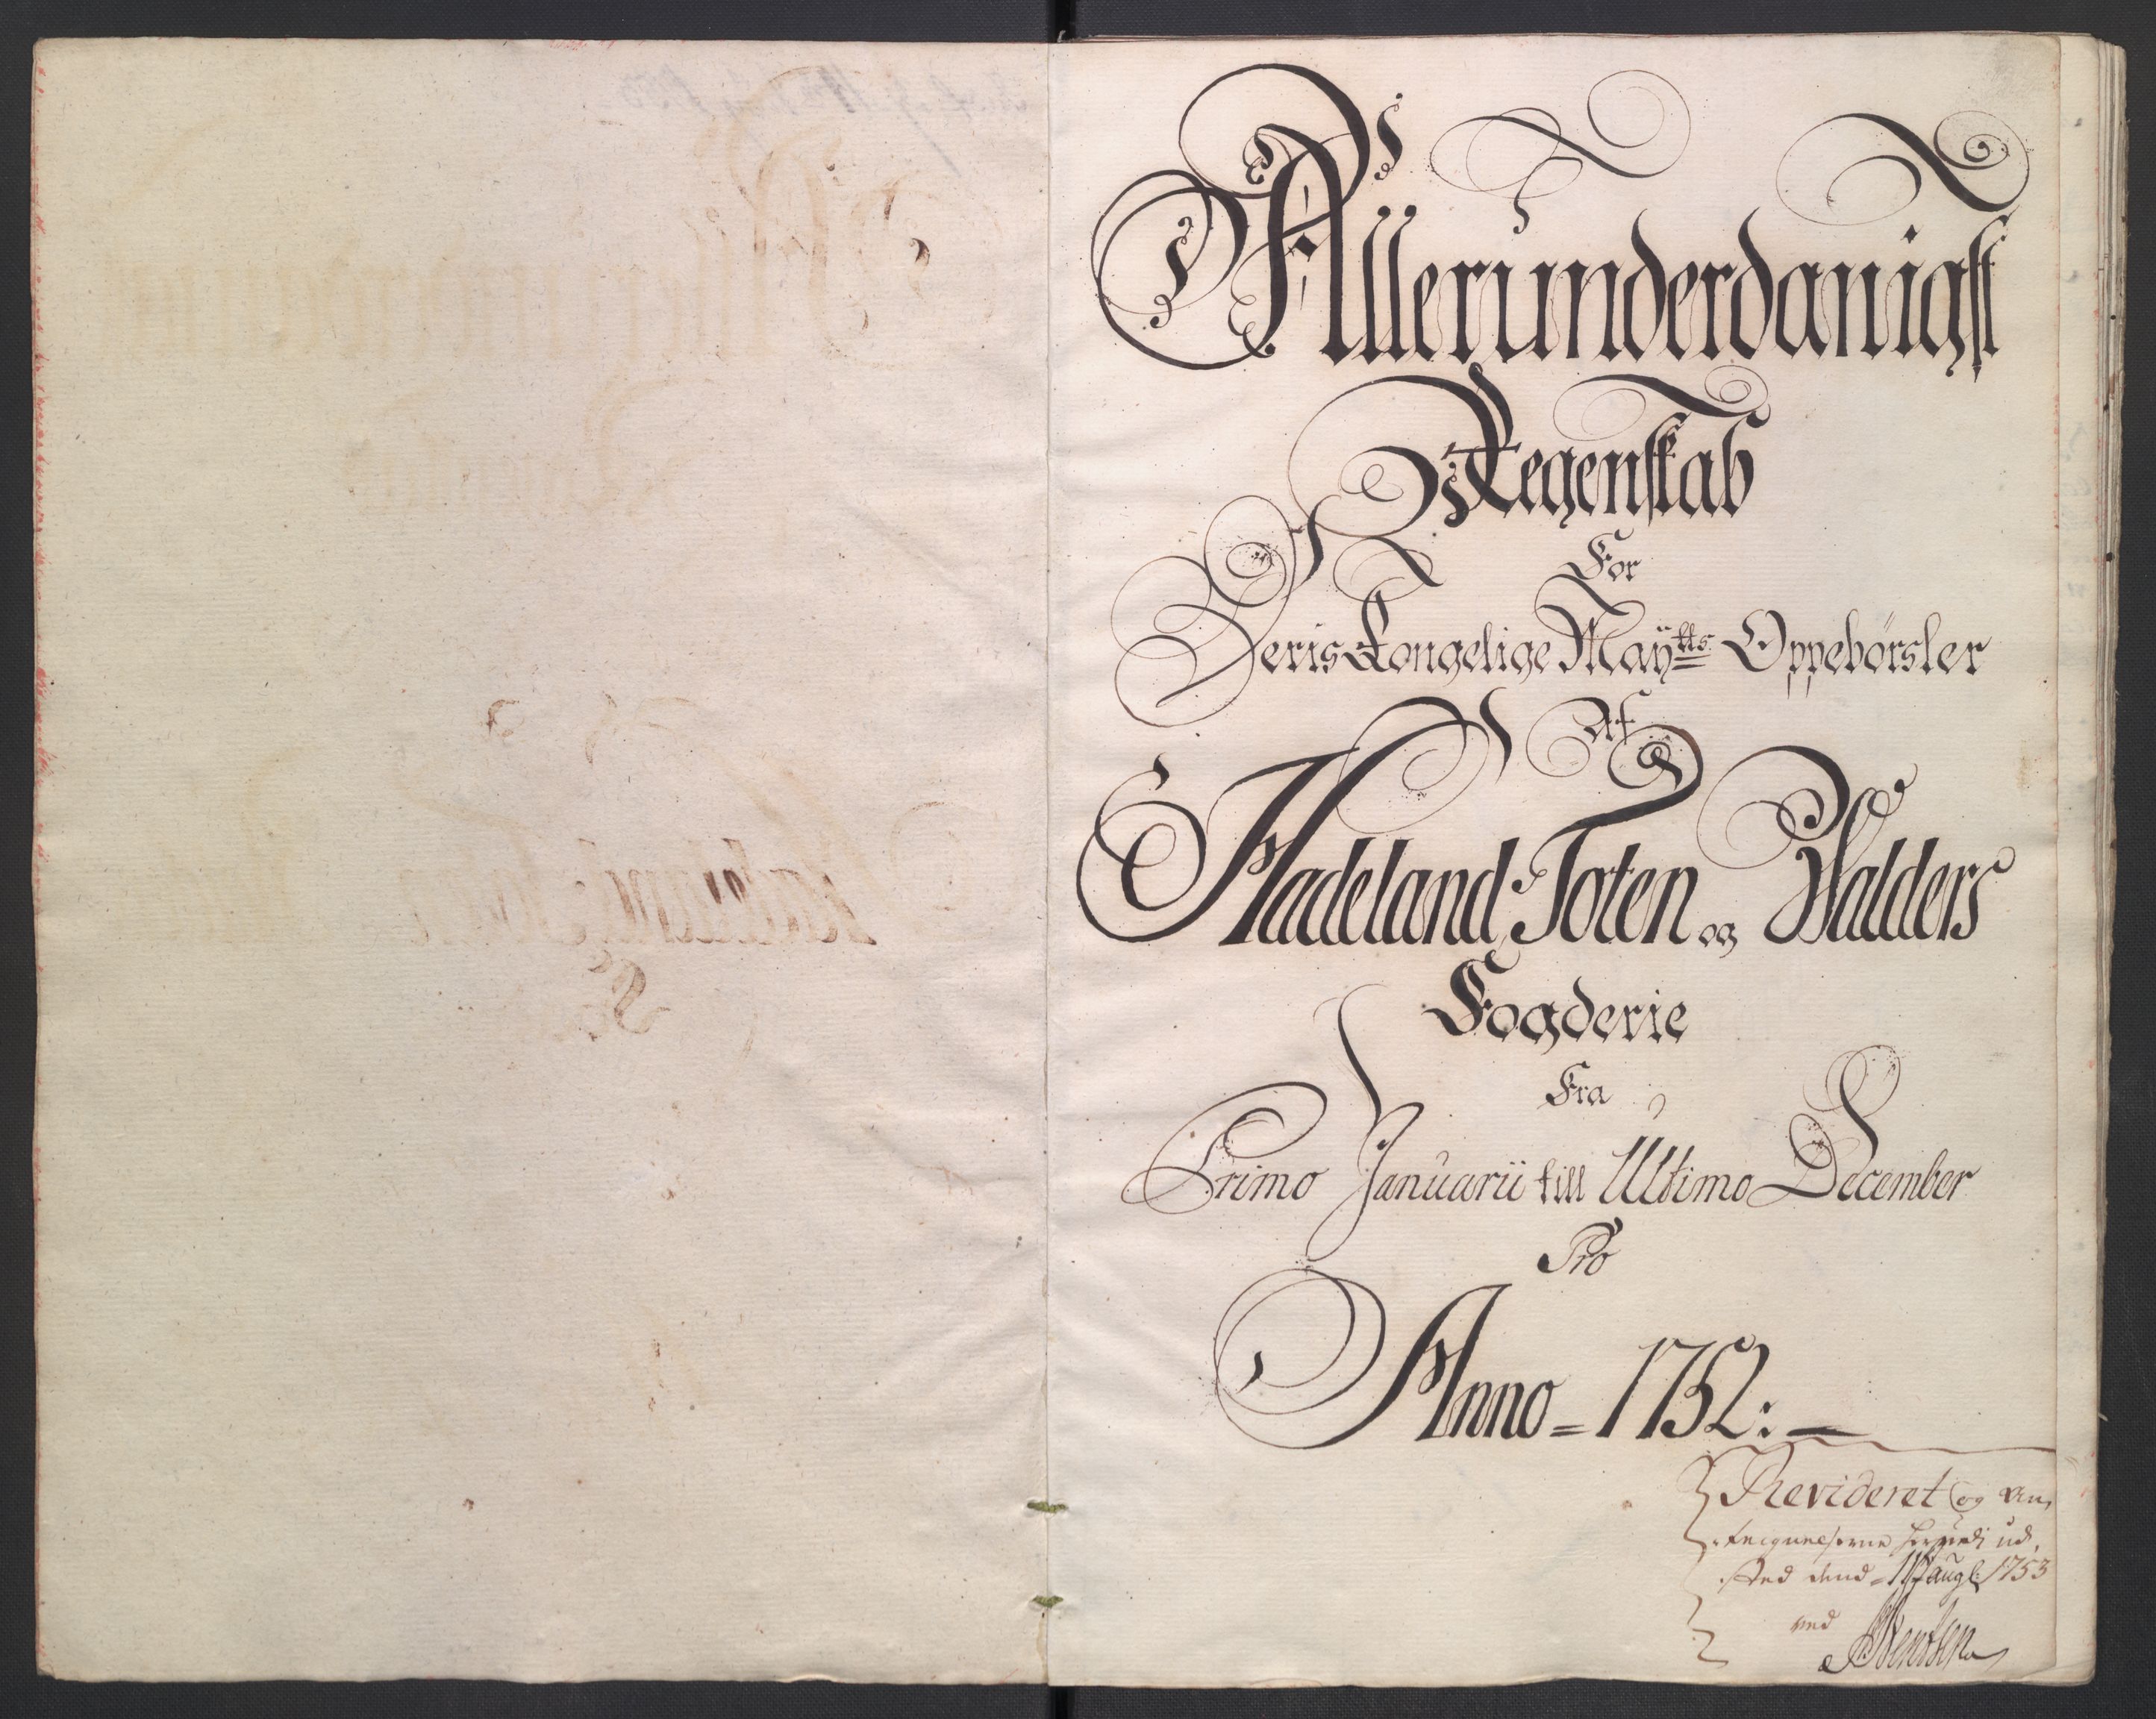 Allerunderdanigst
Regenskab
For
Deris Kongelige Maÿtts Oppebørsler
Af
Hadeland, Toten og Walders
Fogderie
Fra
Primo Januarii till Ultimo December
Pro
Anno = 1752:
Revideret og An,
ud,
sted dend 1753
ved